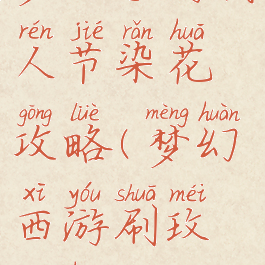 rén jié rǎn huā
人节染花
gōng lüè mèng huàn
攻略(梦幻
xī yóu shuā méi
西游刷玫